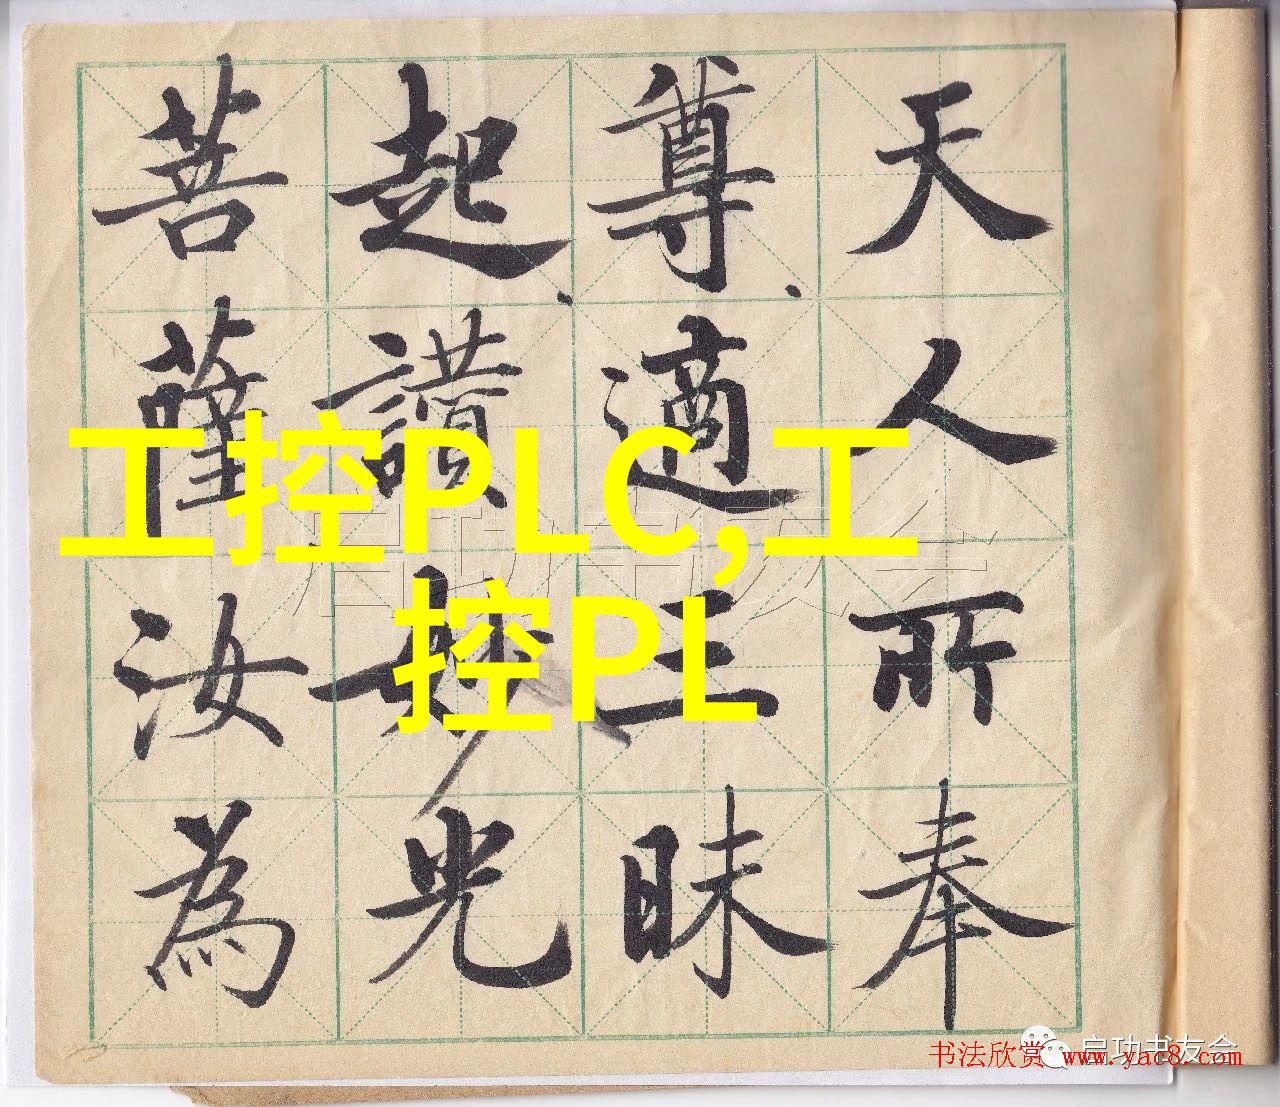 天人所奉
尊、適三昧
起、讚妙光
菩薩汝為
工控PLC,工
控PL
启功书友会
启功书友会
书法欣赏 www.yac8.com